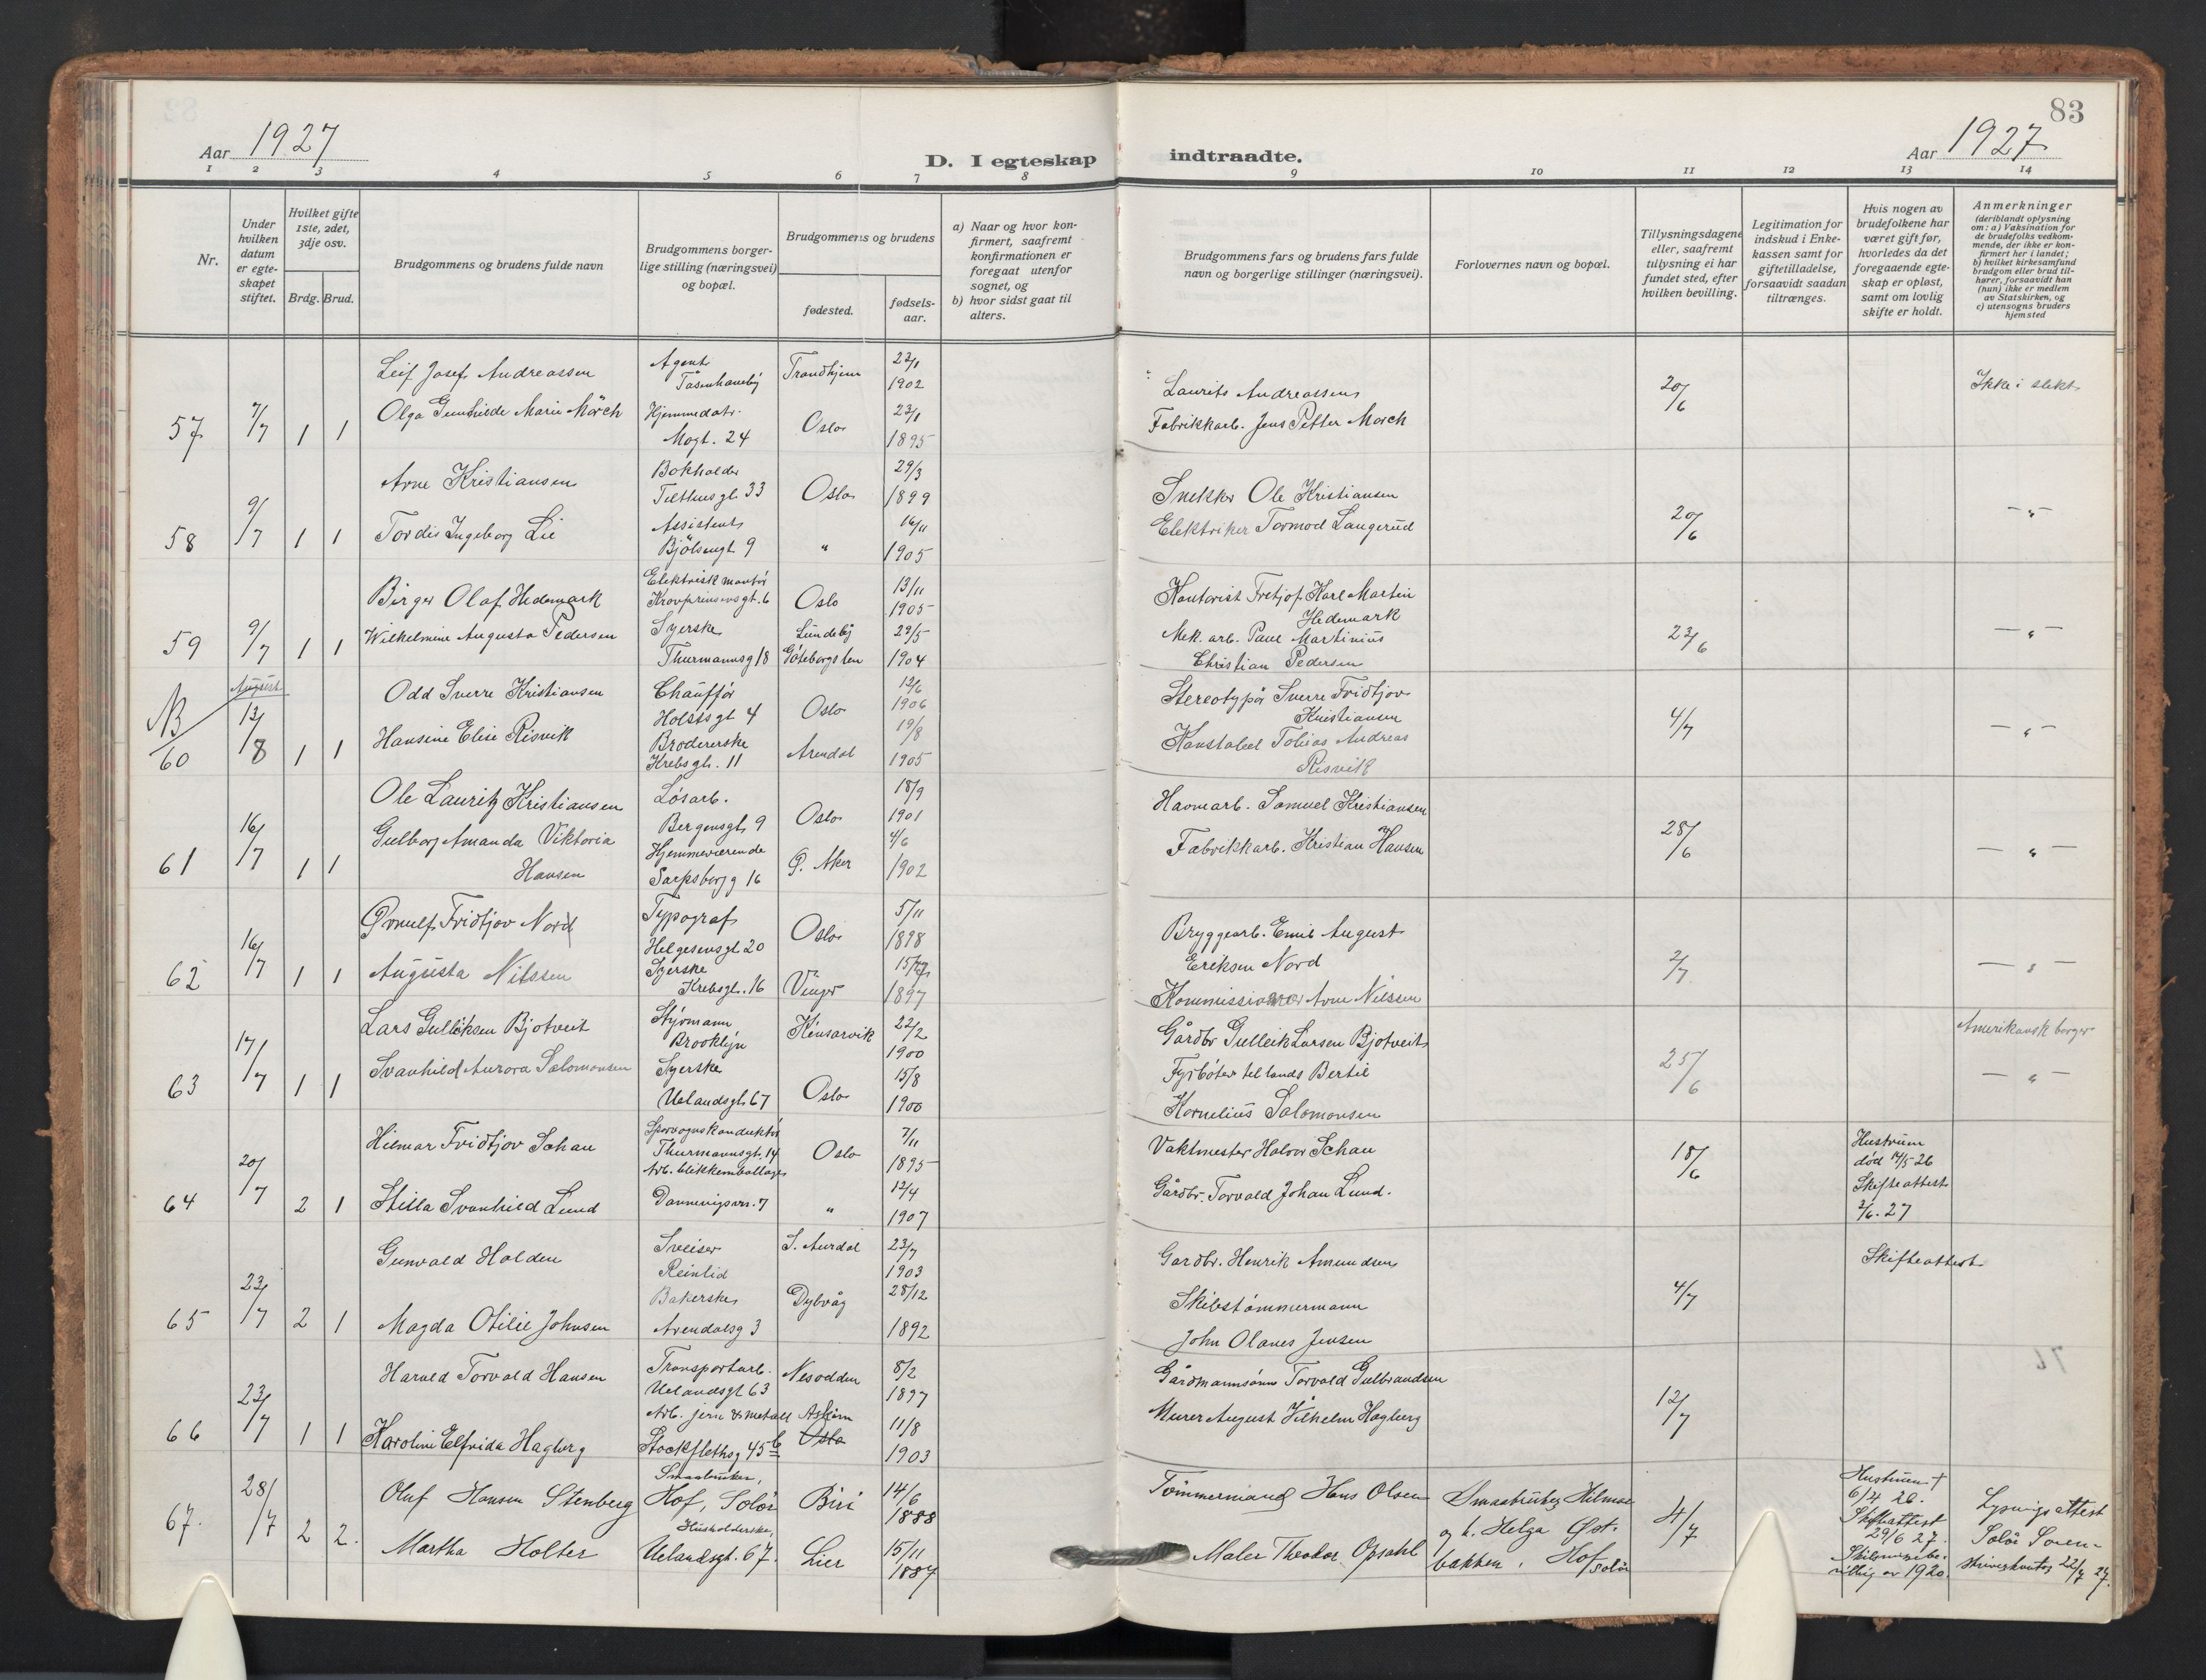 83
Aar 1927
D. I egteskap
indtraadte.
Aar 1927
1 2 3 4 5 6 7 8 9 10 11 12 13 14
Nr.
Under hvilken datum er egteskapet stiftet.
Hvilket gifte 1ste, 2det, 3dje osv.
Brdg. Brud.
Brudgommens og brudens fulde navn
Brudgommens borgerlige stilling (næringsvei) og bopæl.
Brudgommens og brudens
fødested.
fødselsaar.
a) Naar og hvor konfirmert, saafremt konfirmationen er foregaat utenfor sognet, og
b) hvor sidst gaat til alters.
Brudgommens fars og brudens fars fulde navn og borgerlige stillinger (næringsvei).
Forlovernes navn og bopæl.
Tillysningsdagene eller, saafremt tillysning ei har fundet sted, efter hvilken bevilling.
Legitimation for indskud i Enkekassen samt for giftetilladelse, forsaavidt saadan tiltrænges.
Hvis nogen av brudefolkene har været gift før, hvorledes da det foregaaende egteskap er opløst, samt om lovlig skifte er holdt.
Anmerkninger
(deriblandt oplysning om: a) Vaksination for de brudefolks vedkommende, der ikke er konfirmert her i landet; b) hvilket kirkesamfund brudgom eller brud tilhører, forsaavidt han (hun) ikke er medlem av Statskirken, og c) utensogns bruders hjemsted
Leif Josef Andreassen Agent Tåsenhaveby Trondhjem 23/1 1902 Laurits Andreassen 20/6 Ikke i slekt
57 7/7 1 1 Olga Gunhilde Marie Mørch Hjemmedatr. Mogt. 24 Oslo 23/1 1895 Fabrikkarb. Jens Petter Morch
Arne Kristiansen Bokholder Tilthusgt. 33 Oslo 29/3 1899 Snekker Ole Kristiansen 20/6 — " —
58 9/7 1 1 Tordis Ingeborg Lie Assistent Bjølsengt 9 " 16/11 1905 Elektriker Tormod Langerud
Birger Olaf Hedemark Elektrisk montør Kronprinsensgt. 6 Oslo 13/11 1905 Kontorist Fretjof Karl Martin Hedemark 23/6 — " —
59 9/7 1 1 Wilhelmine Augusta Pedersen Syerske Thurmannsg 18 Lundeby Göteborgs len 29/5 1904 Mek. arb. Paul Martinius Christian Pedersen
NB August
Odd Sverre Kristiansen Chauffør Holstsgt 4 Oslo 12/6 1906 Stereotypør Sverre Fridtjov Kristiansen 4/7 — " —
60 13/8 1 1 Hansine Elise Risvik Brodererske Krebsgt. 11 Arendal 19/8 1905 Konstabel Tobias Andreas Risvik
Ole Lauritz Kristiansen Løsarb. Bergensgt. 9 Oslo 18/9 1901 Havnearb. Samuel Kristiansen 28/6 — " —
61 16/7 1 1 Gulborg Amanda Viktoria Hansen Hjemmeværende Sarpsborg g 16 Ø. Aker 4/6 1902 Fabrikkarb. Kristian Hansen
Ørnulf Fridtjov Nord Typograf Helgesensgt 20 Oslo 5/11 1898 Bryggearb. Emil August Eriksen Nord 2/7 — " —
62 16/7 1 1 Augusta Nilssen Syerske Krebsgt. 16 Vinger 15/ 1897 Kommissionær Arne Nilssen
Lars Gulleiksen Bjotveit Styrmann Brooklyn Kinsarvik 22/2 1900 Gårdbr Gulleik Larsen Bjotveit 25/6 Amerikansk borger
63 17/7 1 1 Svanhild Aurora Salomonsen Syerske Uelandsgt. 67 Oslo 15/8 1900 Fyrbøter til lands Bertil Kornelius Salomonsen — " —
Hilmar Fridtjov Schau Sporvognskonduktør Thurmannsgt. 14 Oslo 7/11 1895 Vaktmester Halvor Schau 18/6 Hustrun død 14/5 26 Skifteattest 2/6. 27
64 20/7 2 1 Stilla Svanhild Lund Arb. blikkemballage Danmigsvn. 7 " 12/4 1907 Gårdbr. Torvald Johan Lund.
Gunvald Holden Sveiser Reinlid S. Aurdal 23/7 1903 Gardbr. Henrik Amundsen 4/7 Skifteattest
65 23/7 2 1 Magda Otilie Johnsen Bakerske Arendalsg 3 Dybvåg 28/12 1892 Skibstømmermann John Olaves Jensen
Harald Torvald Hansen Transportarb. Uelandsgt 63 Nesodden 8/2 1897 Gårdmannsønn Torvald Gulbrandsen 12/7
66 23/7 1 1 Karoline Elfrida Hagberg Arb. jern & metall Stockflethsg 45 b Askim Oslo 11/8 1903 Murer August Vilhelm Hagberg
Oluf Hansen Stenberg Smaabruker, Hof, Solør Biri 14/6 1888 Tømmermand Hans Olsen Smaabruker Hilmar og h. Helga Østbakken, Hof Solør 4/7 Hustruen † 6/4 26. Skifteattest 29/6 27. Lysningsattest Solør Sorenskriverkontor 22/7 27.
67. 28/7 2 2. Martha Holter Husholderske, Uelandsgt. 67. Lier 15/11 1887 Maler Theodor Opsahl Skilsmissebevillig av 1920.